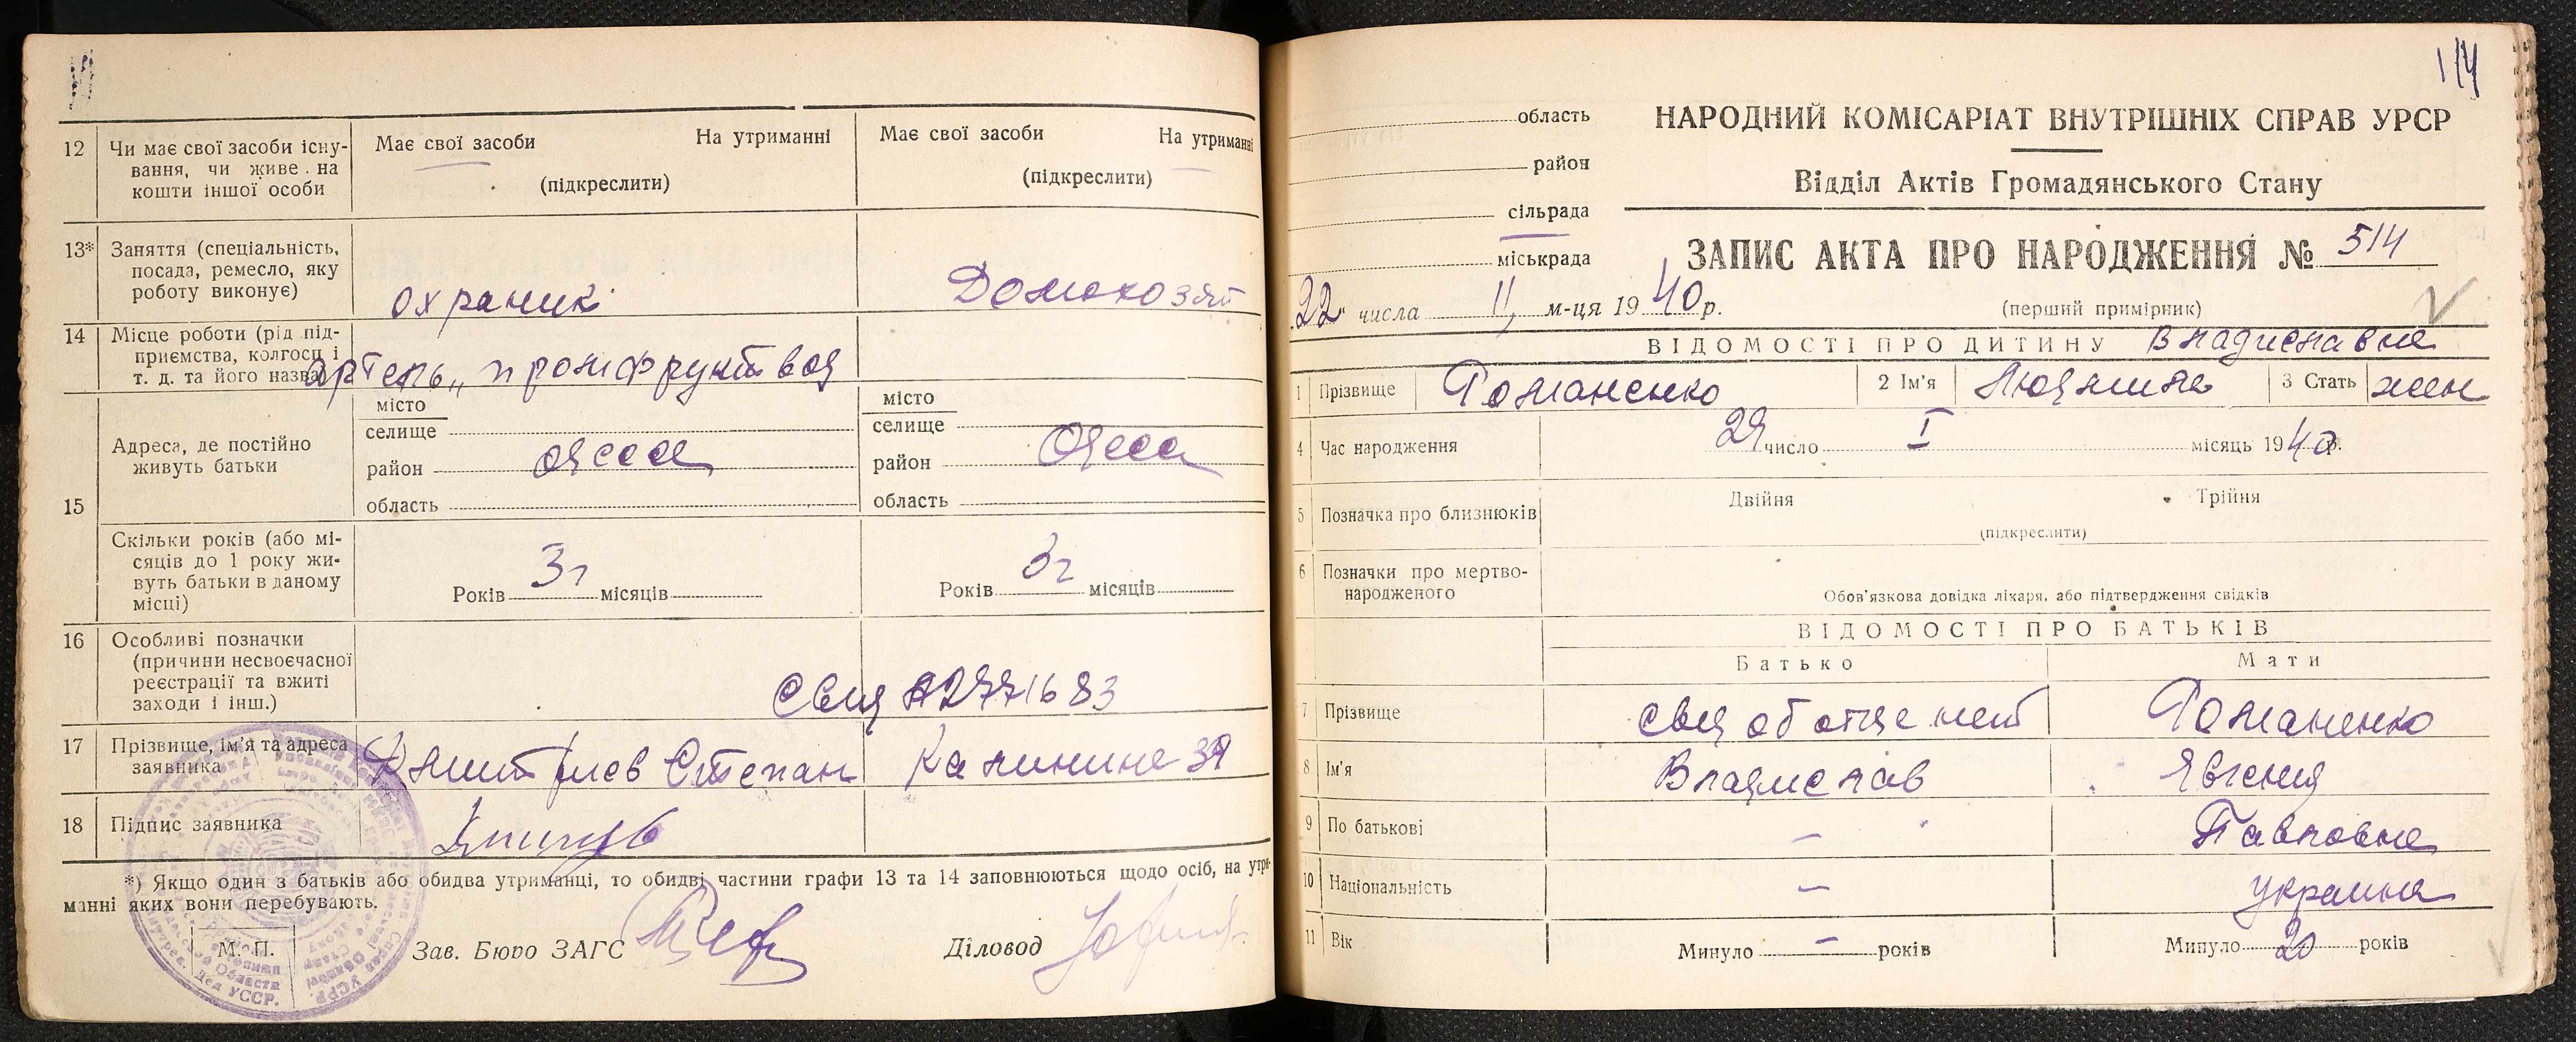 12 Чи має свої засоби існу-
вання, чи живе на
кошти іншої особи
Має свої засоби На утриманні
(підкреслити)
Має свої засоби На утриманні
(підкреслити)
13* Заняття (спеціальність,
посада, ремесло, яку
роботу виконує)
охраник
Домохозяй
14 Місце роботи (рід під-
приємства, колгосп і
т. д. та його назва)
артель „
15 Адреса, де постійно
живуть батьки
місто
селище
район Одесса
область
місто
селище
район Одесса
область
Скільки років (або мі-
сяців до 1 року жи-
вуть батьки в даному
місці)
Років 3 г місяців
Років 3 г місяців
16 Особливі позначки
(причини несвоєчасної
реєстрації та вжиті
заходи і інш.)
17 Прізвище, ім'я та адреса
заявника
Дмитриев Степан Калинина
18 Підпис заявника
*) Якщо один з батьків або обидва утриманці, то обидві частини графи 13 та 14 заповнюються щодо осіб, на утри-
манні яких вони перебувають.
М. П. Зав. Бюро ЗАГС Діловод
114
область
район
сільрада
міськрада
22 числа II м-ця 1940 р.
НАРОДНИЙ КОМІСАРІАТ ВНУТРІШНІХ СПРАВ УРСР
Відділ Актів Громадянського Стану
ЗАПИС АКТА ПРО НАРОДЖЕННЯ № 514
(перший примірник)
ВІДОМОСТІ ПРО ДИТИНУ Владиславне
1 Прізвище Романенко 2 Ім'я Людмила 3 Стать жен
4 Час народження 29 число I місяць 1940 р.
5 Позначка про близнюків Двійня Трійня
(підкреслити)
6 Позначки про мертво-
народженого
Обов'язкова довідка лікаря, або підтвердження свідків
ВІДОМОСТІ ПРО БАТЬКІВ
Батько Мати
7 Прізвище свед об отце нет Романенко
8 Ім'я Владислав Явгения
9 По батькові – Павловна
10 Національність – украинка
11 Вік Минуло – років Минуло 20 років